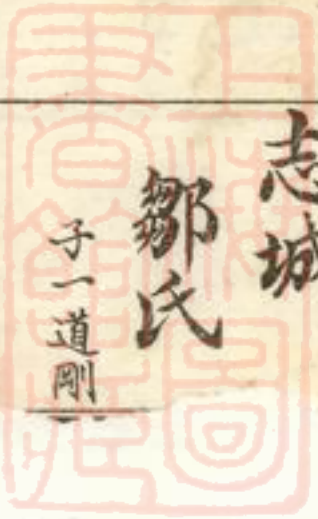 志城
鄒氏
子一道剛